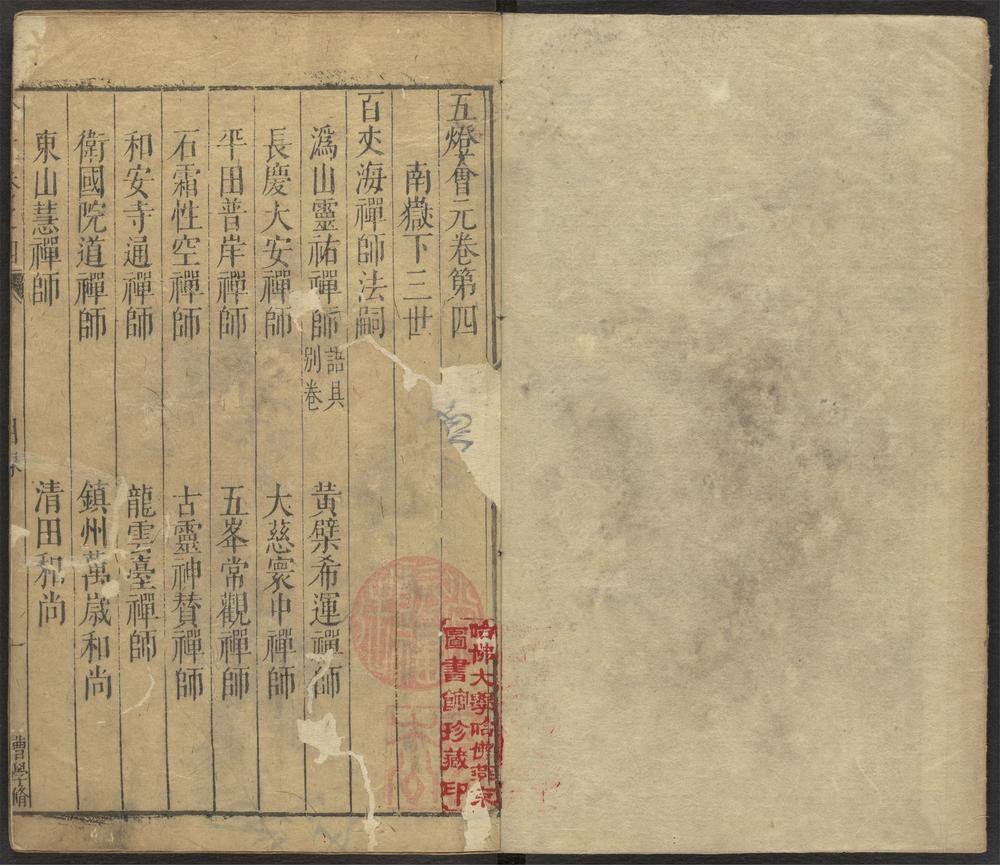 五燈會元卷第四
南嶽下三世
百丈海禪師法嗣
潙山靈祐禪師 語具別卷 黃檗希運禪師
長慶大安禪師 大慈寰中禪師
平田普岸禪師 五峯常觀禪師
石霜性空禪師 古靈神贊禪師
和安寺通禪師 龍雲臺禪師
衛國院道禪師 鎮州萬歲和尚
東山慧禪師 清田和尚
一
曹學脩
哈佛大學哈佛燕京
圖書館珍藏印